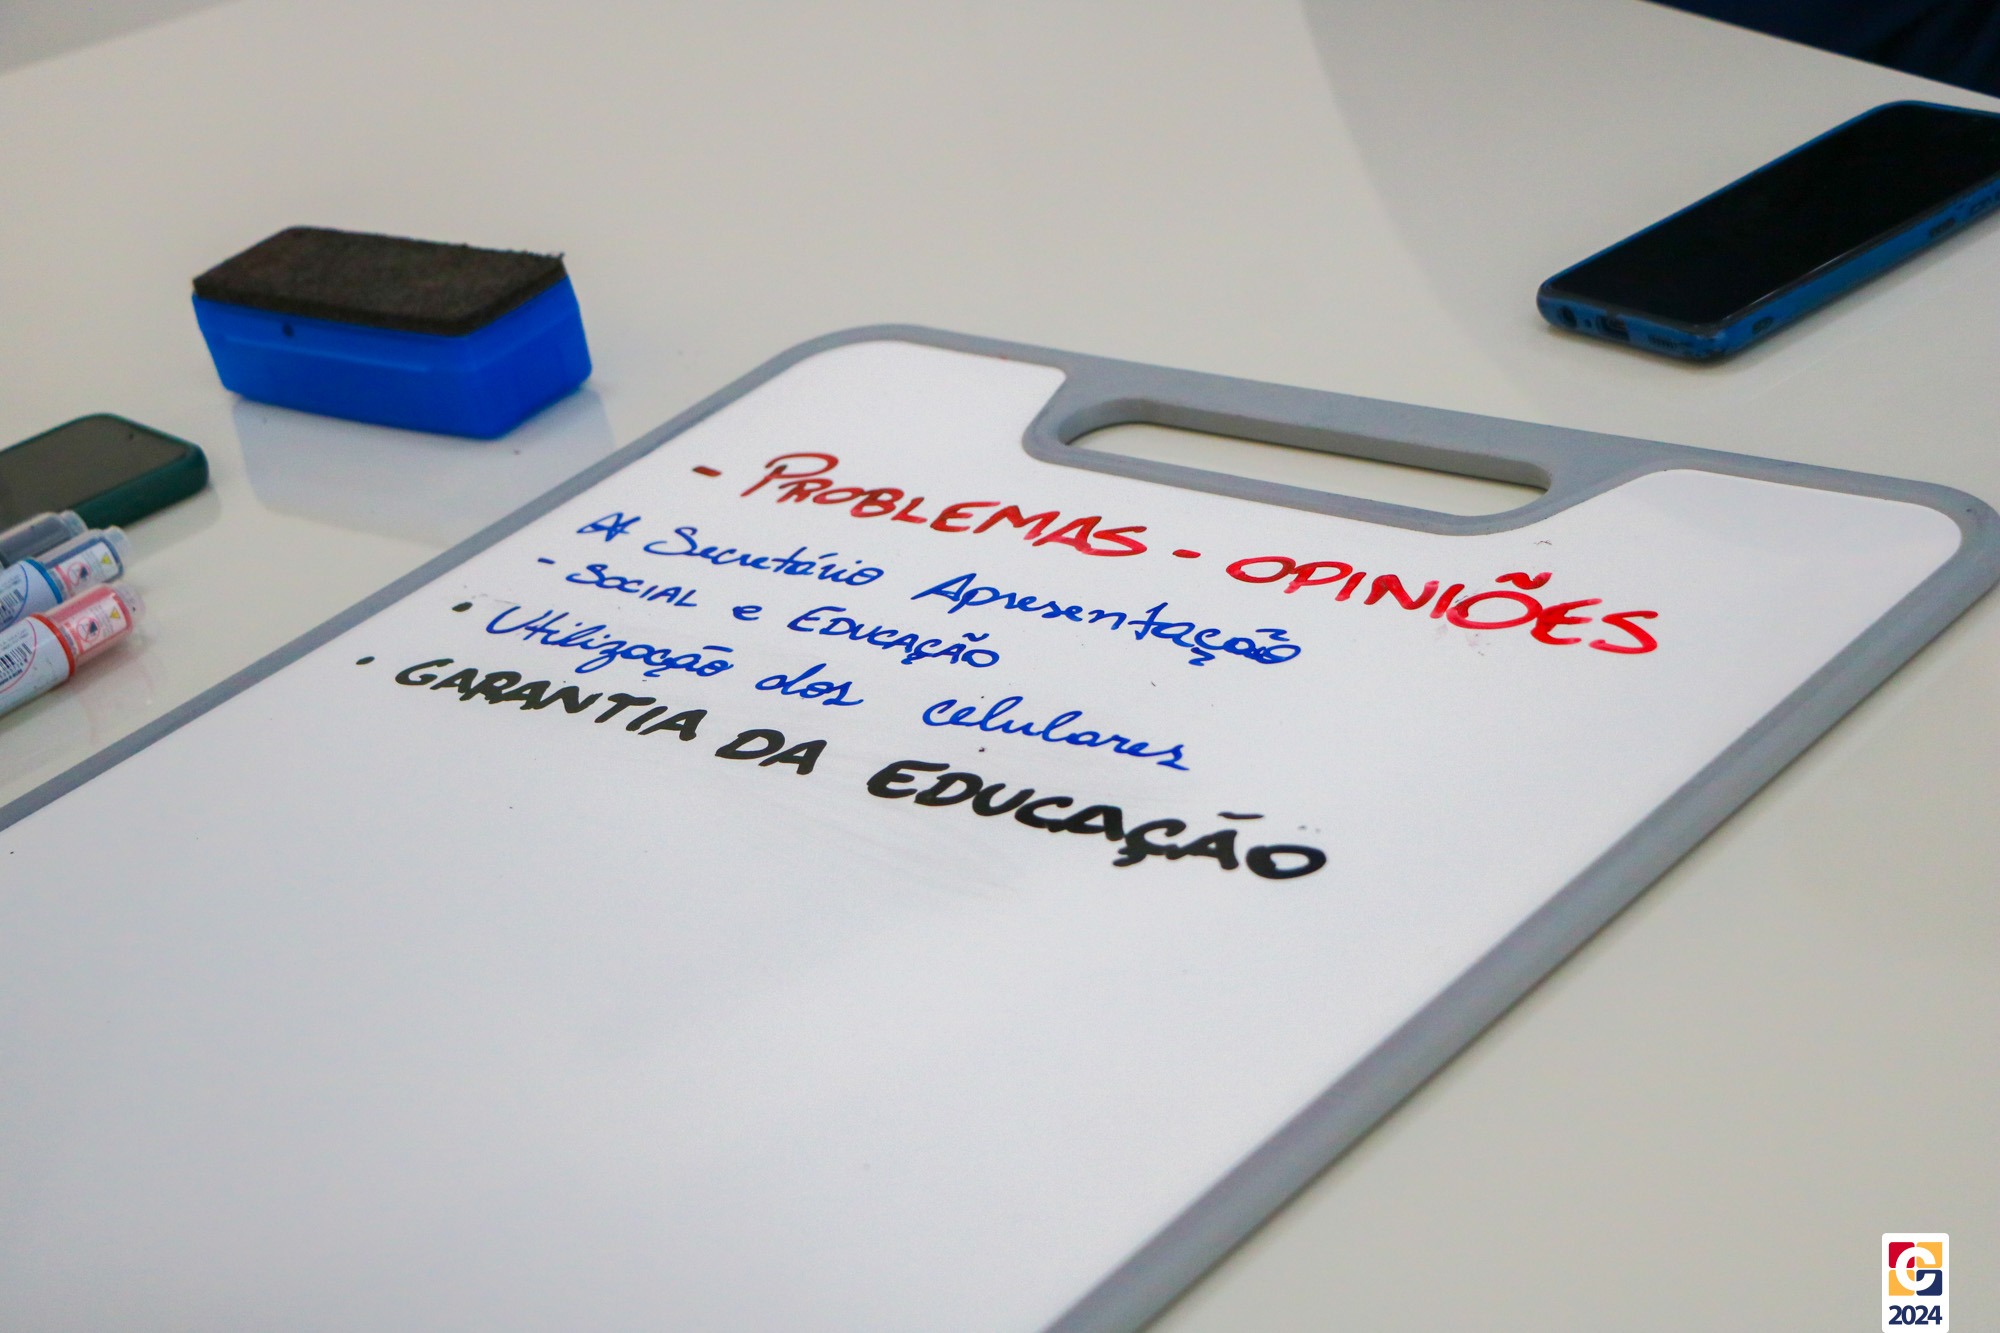 - PROBLEMAS - OPINIÕES
At Secretário Apresentação
- SOCIAL e EDUCAÇÃO
• Utilização dos celulares
• GARANTIA DA EDUCAÇÃO
G
2024